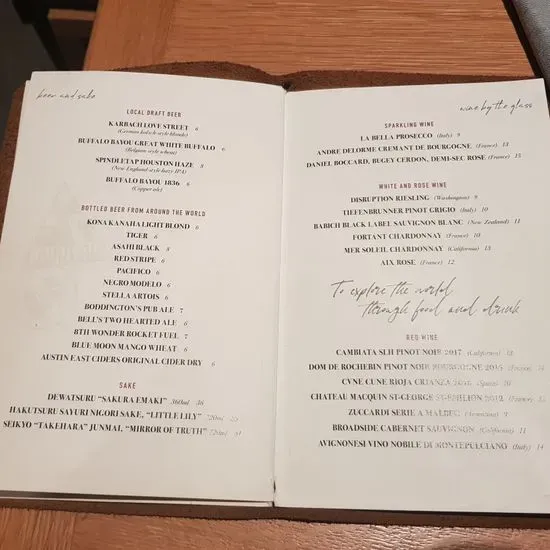 beer and sake
LOCAL DRAFT BEER
KARBACH LOVE STREET 6
(German kolsch-style blonde)
BUFFALO BAYOU GREAT WHITE BUFFALO 6
(Belgian-style wheat)
SPINDLETAP HOUSTON HAZE 8
(New England-style hazy IPA)
BUFFALO BAYOU 1836 6
(Copper ale)
BOTTLED BEER FROM AROUND THE WORLD
KONA KANAHA LIGHT BLOND 6
TIGER 6
ASAHI BLACK 8
RED STRIPE 6
PACIFICO 6
NEGRO MODELO 6
STELLA ARTOIS 6
BODDINGTON'S PUB ALE 7
BELL'S TWO HEARTED ALE 6
8TH WONDER ROCKET FUEL 7
BLUE MOON MANGO WHEAT 6
AUSTIN EAST CIDERS ORIGINAL CIDER DRY 6
SAKE
DEWATSURU "SAKURA EMAKI" 360ml 36
HAKUTSURU SAYURI NIGORI SAKE, "LITTLE LILY" 720ml
SEIKYO "TAKEHARA" JUNMAI, "MIRROR OF TRUTH" 720ml
wine by the glass
SPARKLING WINE
LA BELLA PROSECCO (Italy) 9
ANDRE DELORME CREMANT DE BOURGOGNE (France) 13
DANIEL BOCCARD, BUGEY CERDON, DEMI-SEC ROSE (France) 15
WHITE AND ROSE WINE
DISRUPTION RIESLING (Washington) 9
TIEFENBRUNNER PINOT GRIGIO (Italy) 10
BABICH BLACK LABEL SAUVIGNON BLANC (New Zealand) 11
FORTANT CHARDONNAY (France) 10
MER SOLEIL CHARDONNAY (California) 13
AIX ROSE (France) 12
To explore the world
through food and drink
RED WINE
CAMBIATA SLH PINOT NOIR 2017 (California) 13
DOM DE ROCHEBIN PINOT NOIR BOURGOGNE 2015 (France)
CVNE CUNE RIOJA CRIANZA (Spain) 10
CHATEAU MACQUIN ST-GEORGE ST-EMILION 2012 (France)
ZUCCARDI SERIE A MALBEC (Argentina) 9
BROADSIDE CABERNET SAUVIGNON (California) 11
AVIGNONESI VINO NOBILE DI MONTEPULCIANO (Italy) 14